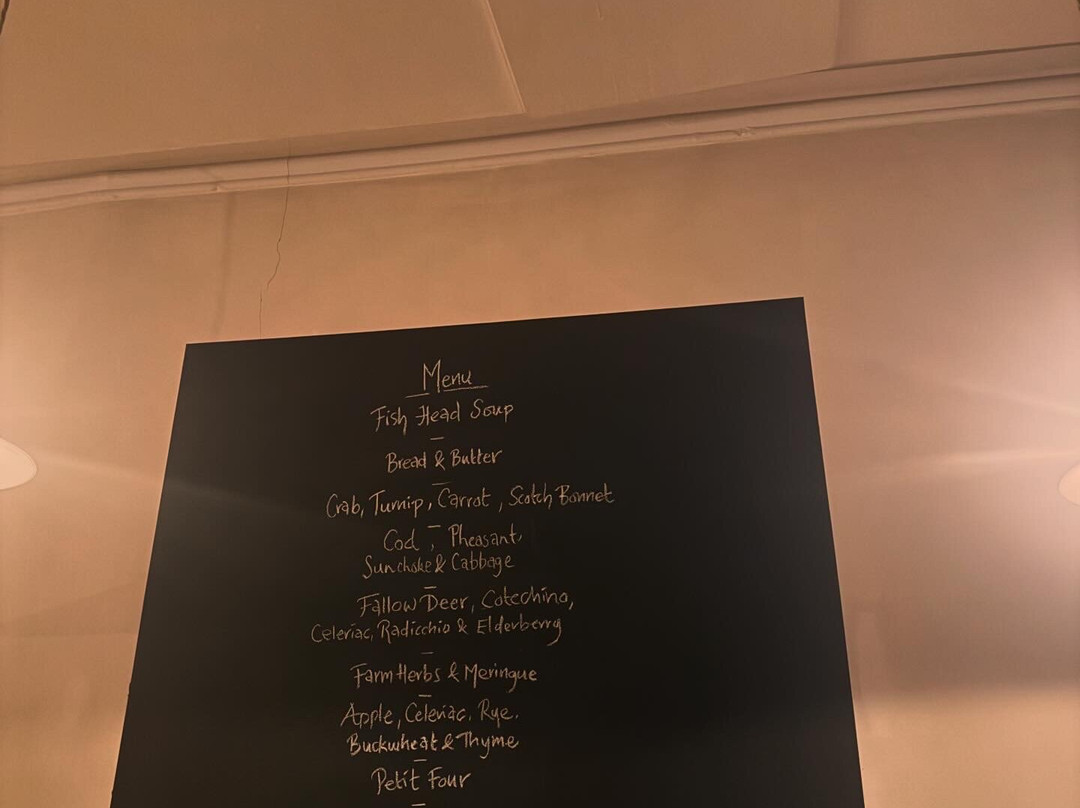 Menu
Fish Head Soup
–
Bread & Butter
–
Crab, Turnip, Carrot, Scotch Bonnet
–
Cod, Pheasant,
Sunchoke & Cabbage
–
Fallow Deer, Cotechino,
Celeriac, Radicchio & Elderberry
–
Farm Herbs & Meringue
–
Apple, Celeriac, Rye,
Buckwheat & Thyme
–
Petit Four
–